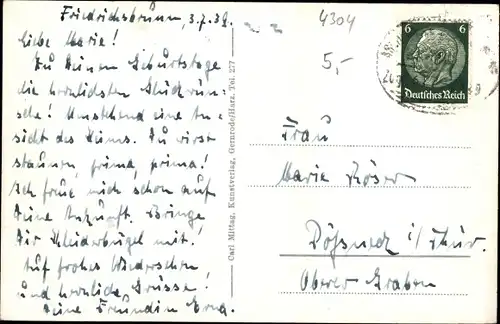 Friedrichsbrunn, 3.7.39.
Liebe Marie!
Zu Deinem Geburtstage
die herzlichsten Glückwün-
sche! Umstehend eine An-
sicht des Heims. Du wirst
staunen, prima, prima!
Ich freue mich schon auf
Deine Ankunft. Bringe
Dir Kleiderbügel mit.
Auf frohes Wiedersehen,
und herzliche Grüsse!
Deine Freundin Erna.
Carl Mittag, Kunstverlag, Gernrode/Harz. Tel. 277
4304
5,-
6 6
Deutsches Reich
Frau
Marie Röser
Pößneck i/Thür.
Oberer Graben